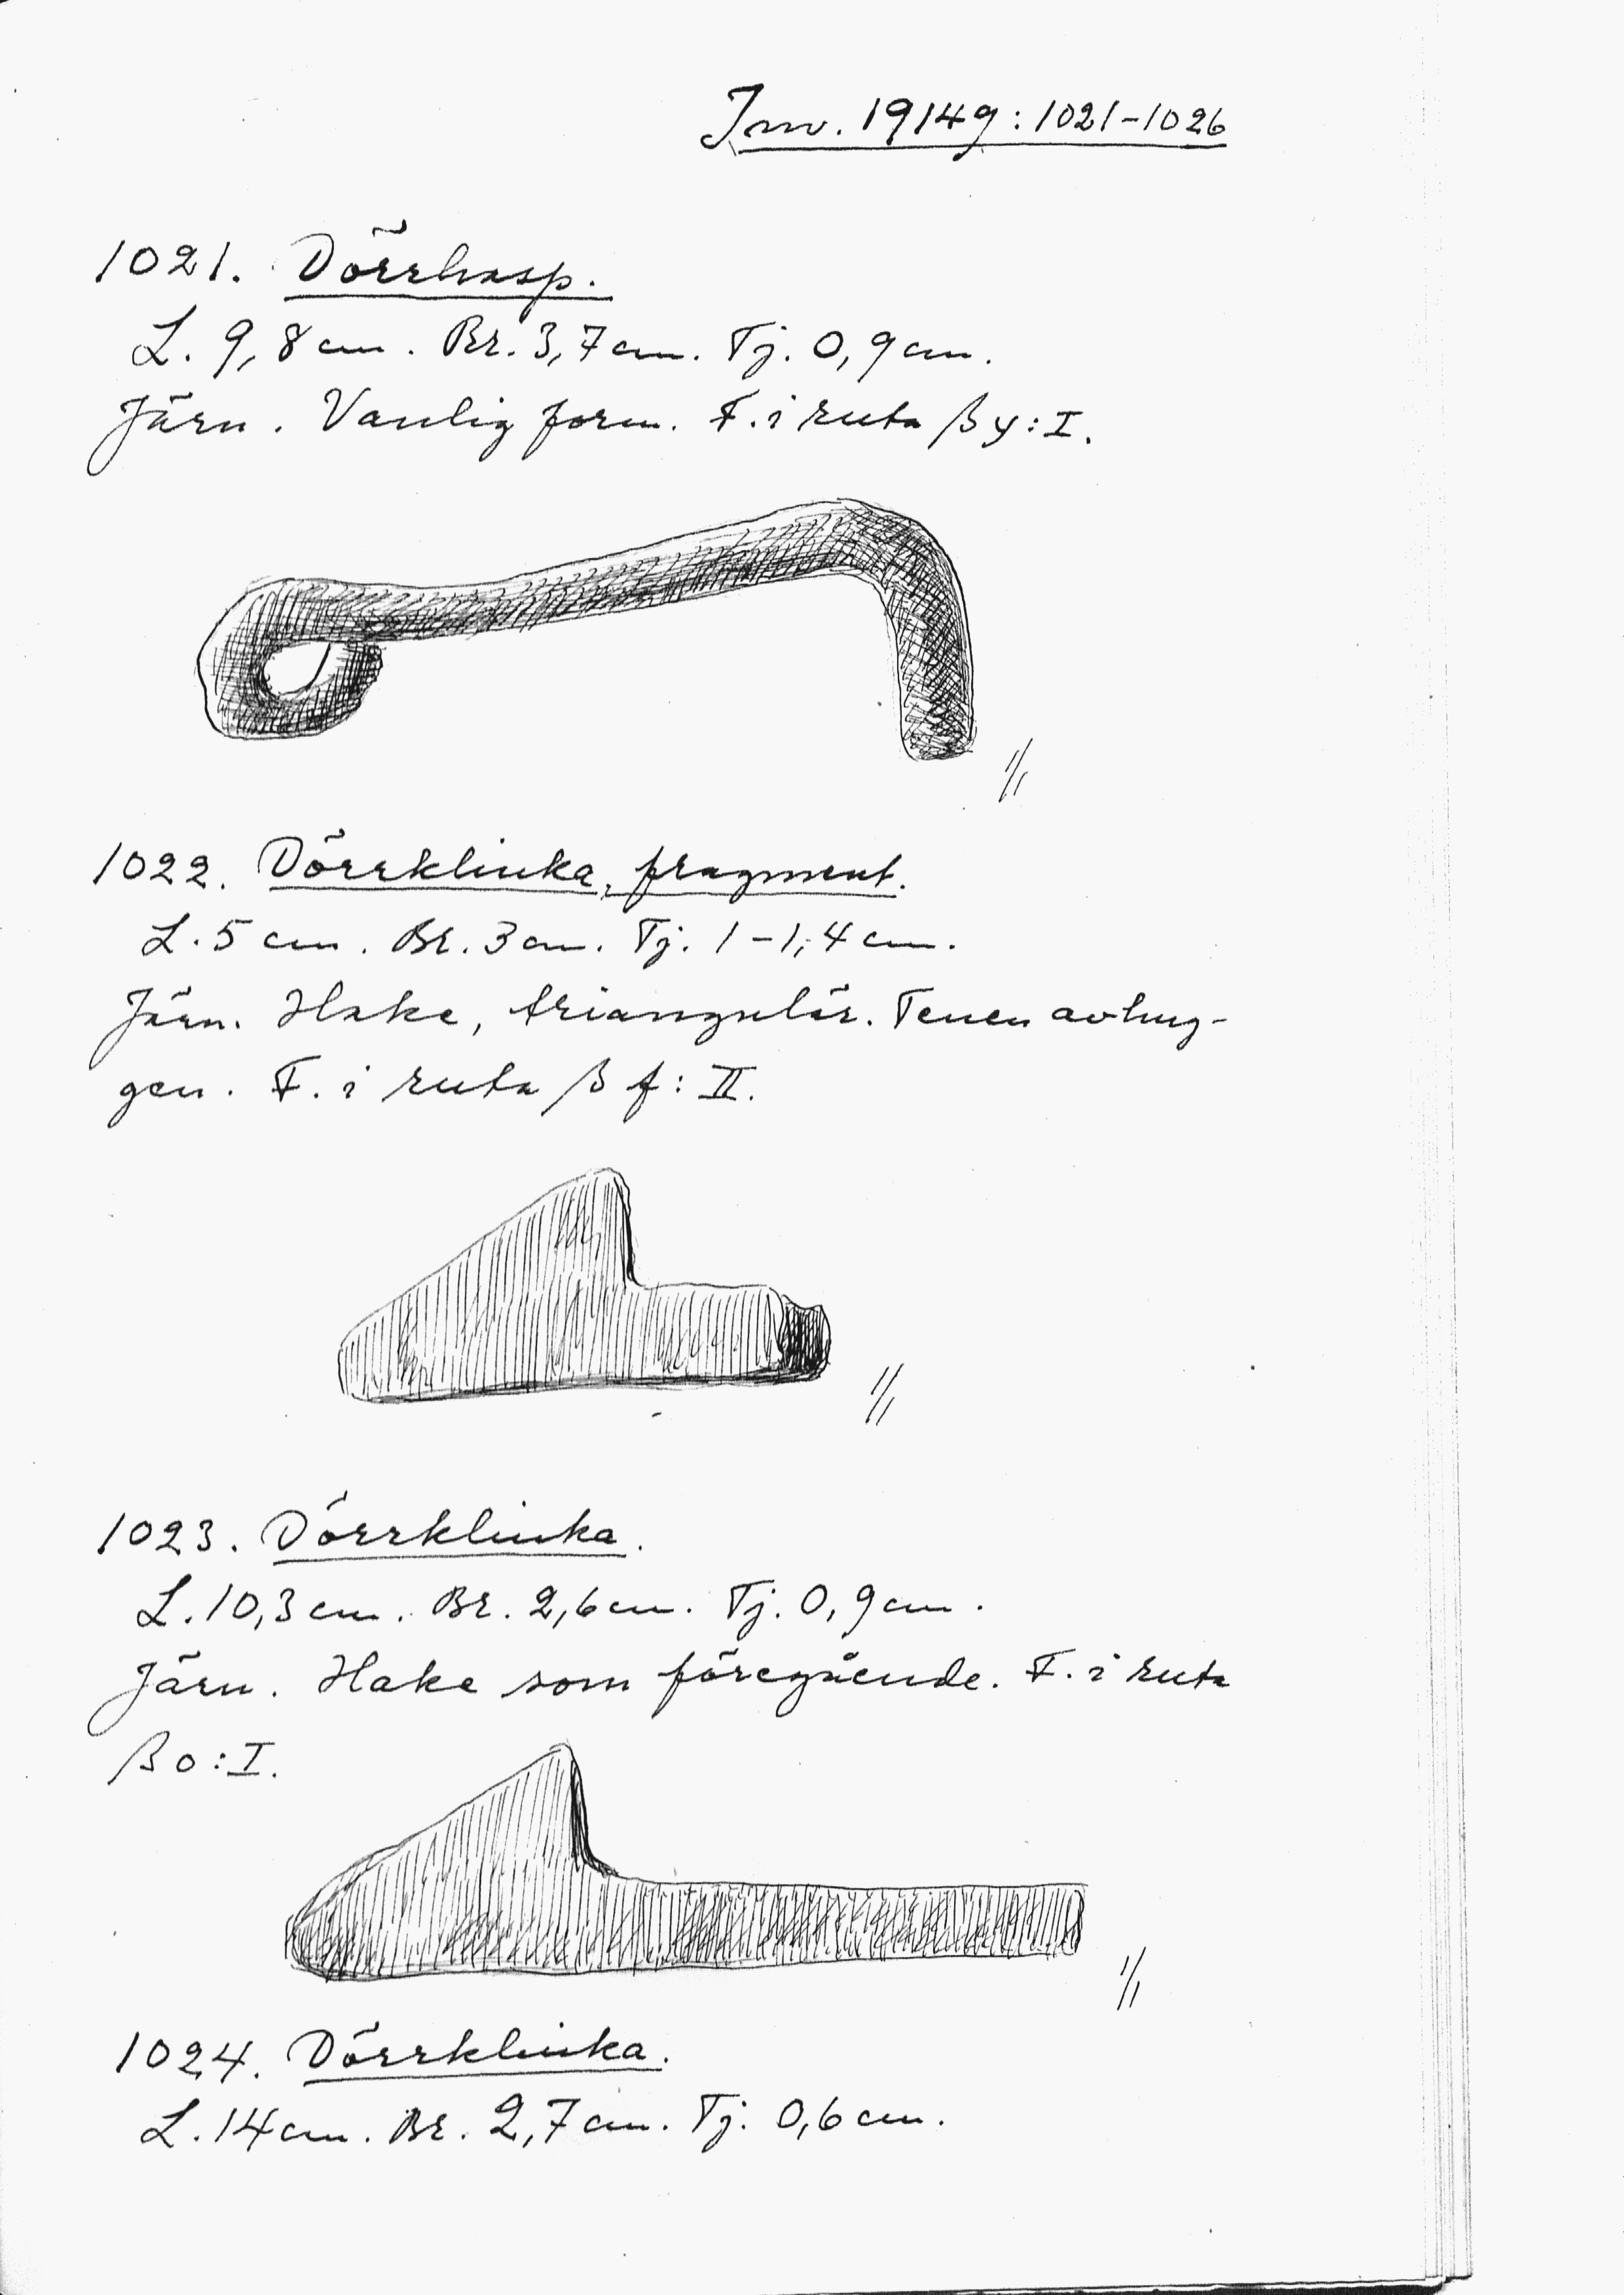 Inv. 19149:1021-1026
1021. Dörrhasp.
L. 9,8 cm. Br. 3,7 cm. Tj. 0,9 cm.
Järn. Vanlig form. F. i ruta βy:I.
1/1
1022. Dörrklinka, fragment.
L. 5 cm. Br. 3 cm. Tj. 1-1,4 cm.
Järn. Hake, triangulär. Tenen avhug-
gen. F. i ruta βf:II.
1/1
1023. Dörrklinka.
L. 10,3 cm. Br. 2,6 cm. Tj. 0,9 cm.
Järn. Hake som föregående. F. i ruta
βo:I.
1/1
1024. Dörrklinka.
L. 14 cm. Br. 2,7 cm. Tj. 0,6 cm.